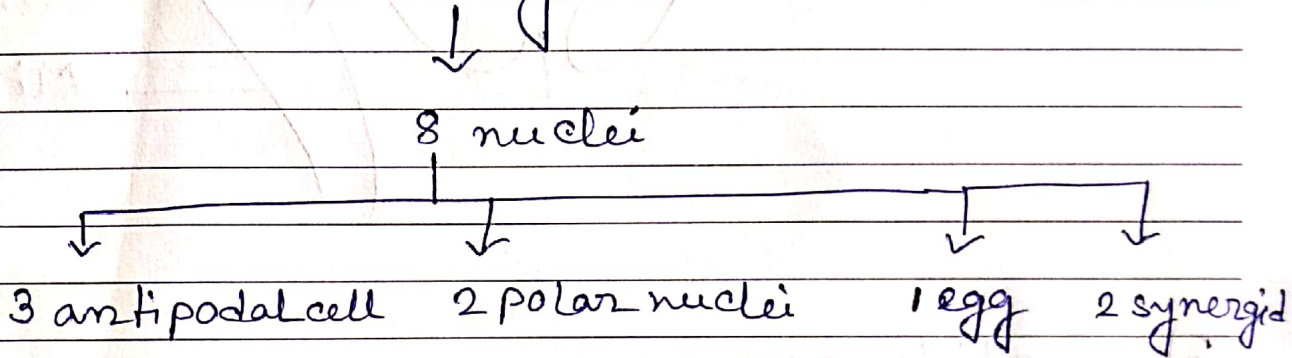 8 nuclei
3 antipodal cell 2 polar nuclei 1 egg 2 synergid